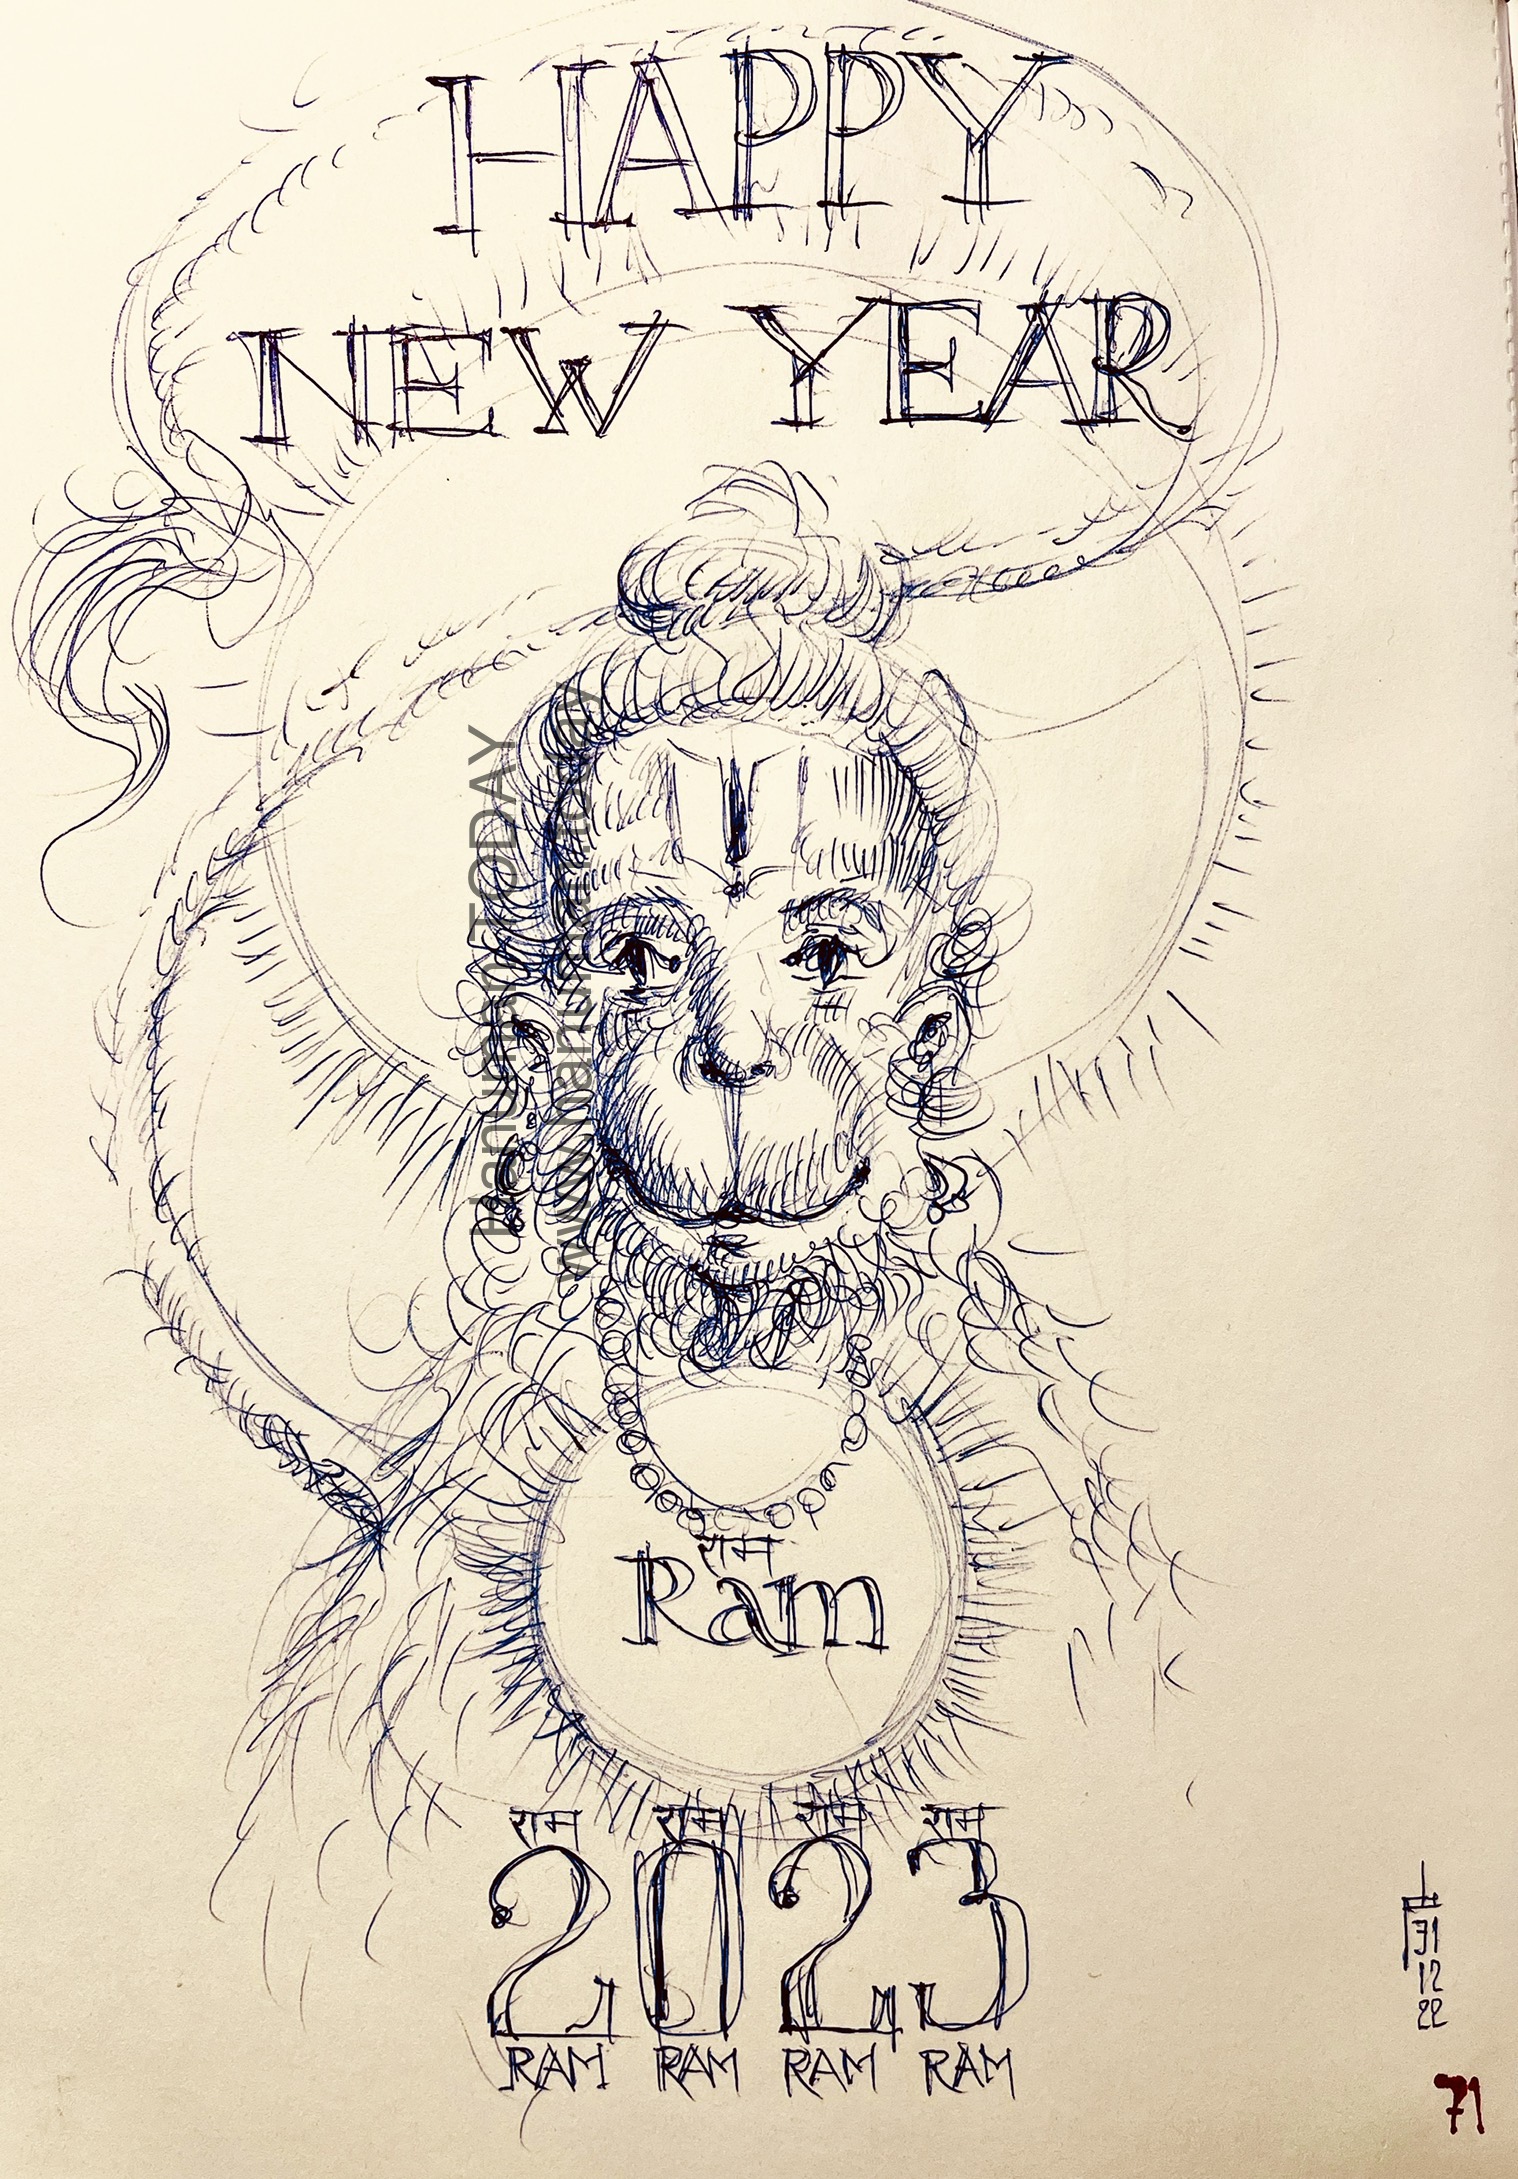 HAPPY
NEW YEAR
HanumanTODAY
www.hanuman.today
राम
Ram
राम राम राम राम
2023
RAM RAM RAM RAM
31
12
22
71